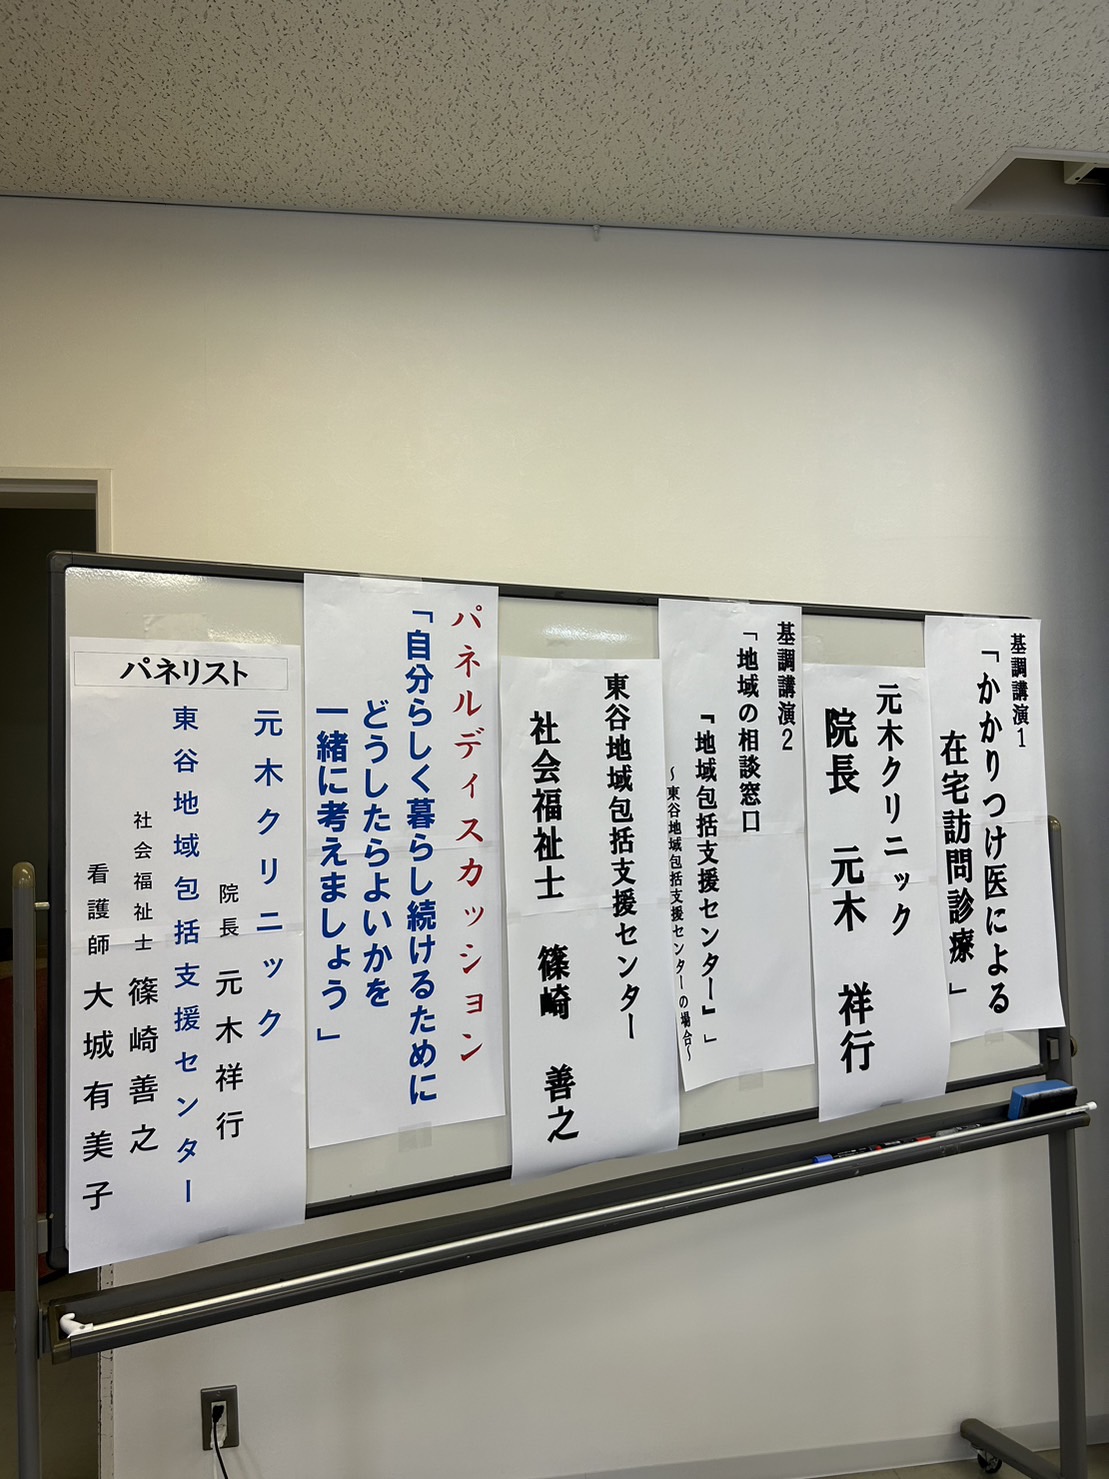 基調講演1
「かかりつけ医による
在宅訪問診療 」
元木クリニック
院長 元木 祥行
基調講演2
「地域の相談窓口
『地域包括支援センター』」
～東谷地域包括支援センターの場合～
東谷地域包括支援センター
社会福祉士 篠崎 善之
パネルディスカッション
「自分らしく暮らし続けるために
どうしたらよいかを
一緒に考えましょう 」
パネリスト
元木クリニック
院長 元木祥行
東谷地域包括支援センター
社会福祉士 篠崎善之
看護師 大城有美子